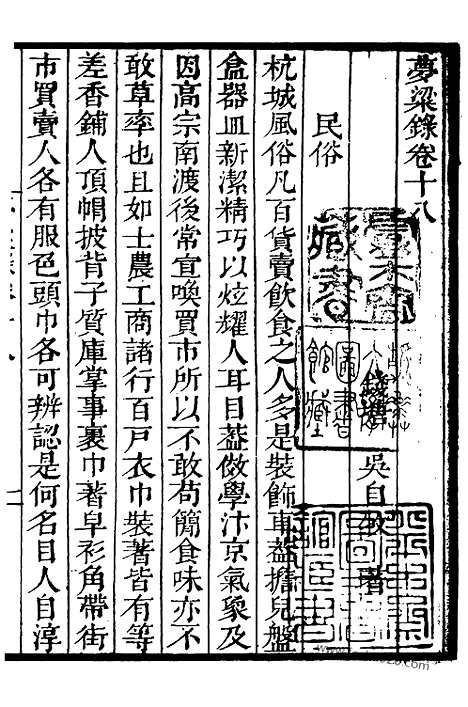 夢粱錄卷十八
錢塘 吳自牧 著
民俗
杭城風俗凡百貨賣飲食之人多是裝飾車葢擔兒盤
盒器皿新潔精巧以炫耀人耳目葢倣學汴京氣象及
因高宗南渡後常宣喚買市所以不敢苟簡食味亦不
敢草率也且如士農工商諸行百戸衣巾裝著皆有等
差香鋪人頂帽披背子質庫掌事裹巾著皁衫角帶街
市買賣人各有服色頭巾各可辨認是何名目人自淳